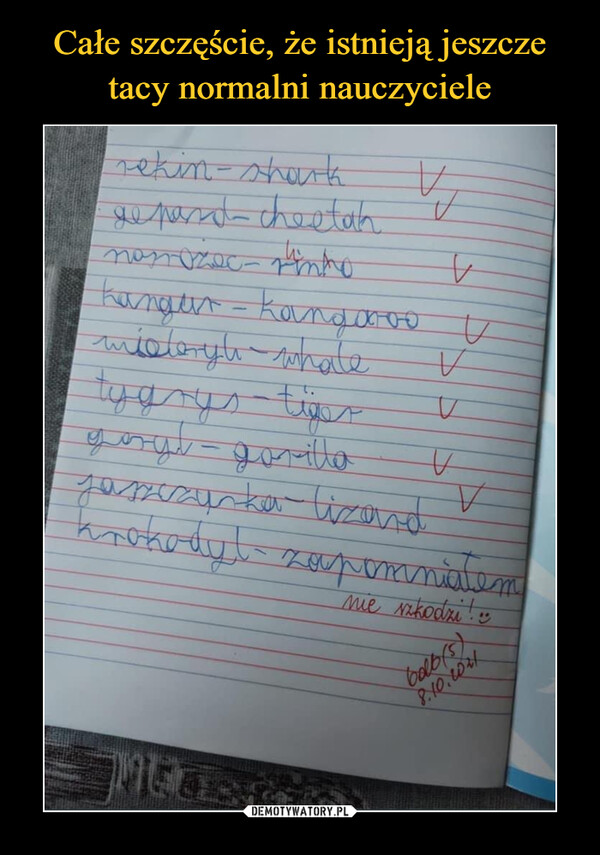 Całe szczęście, że istnieją jeszcze
tacy normalni nauczyciele
rekin - shark V
gepard - cheetah V
nosorożec - rhino V
kangur - kangaroo V
wieloryb - whale V
tygrys - tiger V
goryl - gorilla V
jaszczurka - lizard V
krokodyl - zapomniałem
nie szkodzi! :)
bdb (5)
8.10.2021
DEMOTYWATORY.PL